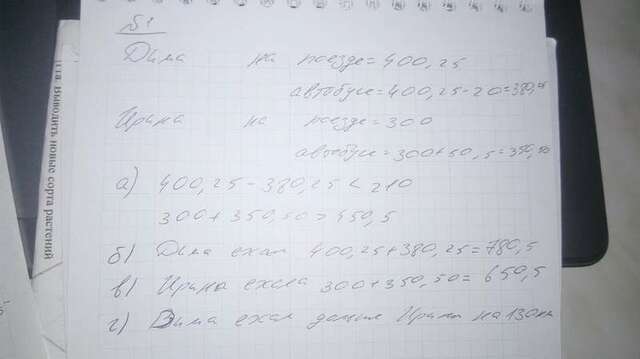 №1
Дима на поезде = 400,25
автобусе = 400,25 - 20 = 380,25
Ирина на поезде = 300
автобусе = 300 + 50,5 = 350,50
а) 400,25 - 380,25 < 210
300 + 350,50 > 450,5
б) Дима ехал 400,25 + 380,25 = 780,5
в) Ирина ехала 300 + 350,50 = 650,5
г) Дима ехал дальше Ирины на 130км
выводить новые сорта растений